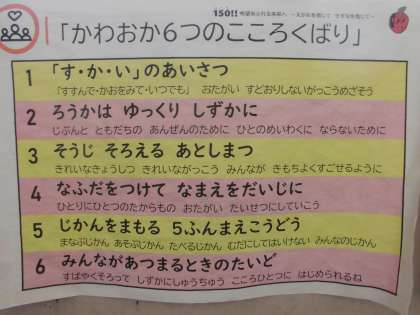 150!! 希望あふれる未来へ ～大かわを信じて きずなを信じて～
「かわおか6つのこころくばり」
1 「す・か・い」のあいさつ
「すすんで・かおをみて・いつでも」 おたがい すどおりしないがっこうめざそう
2 ろうかは ゆっくり しずかに
じぶんと ともだちの あんぜんのために ひとのめいわくに ならないために
3 そうじ そろえる あとしまつ
きれいなきょうしつ きれいながっこう みんなが きもちよくすごせるように
4 なふだをつけて なまえをだいじに
ひとりにひとつのたからもの おたがい たいせつにしていこう
5 じかんをまもる 5ふんまえこうどう
まなぶじかん あそぶじかん たべるじかん むだにしてはいけない みんなのじかん
6 みんながあつまるときのたいど
すばやくそろって しずかにしゅうちゅう こころひとつに はじめられるね